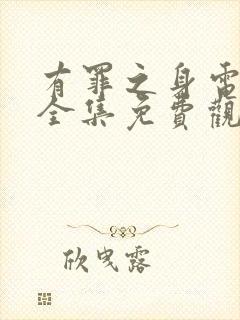 有罪之身電
全集免費觀
欣曳露